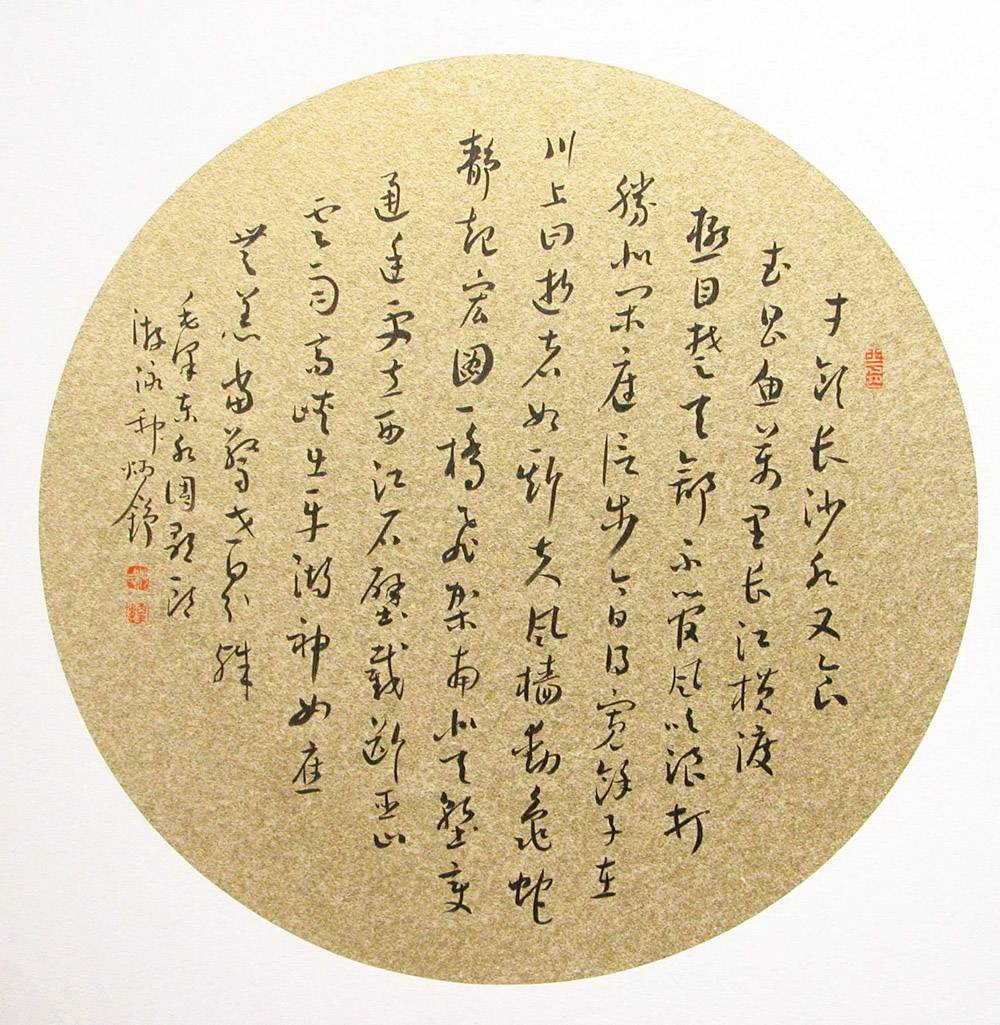 才飲长沙水又食
武昌魚萬里长江横渡
極目楚天舒不管风吹浪打
勝似闲庭信步今日得宽餘子在
川上曰逝者如斯夫风樯動龜蛇
静起宏图一橋飞架南北天塹变
通途更立西江石壁截断巫山
雲雨高峡出平湖神女应
無恙當驚世界殊
毛泽东水调歌頭
游泳